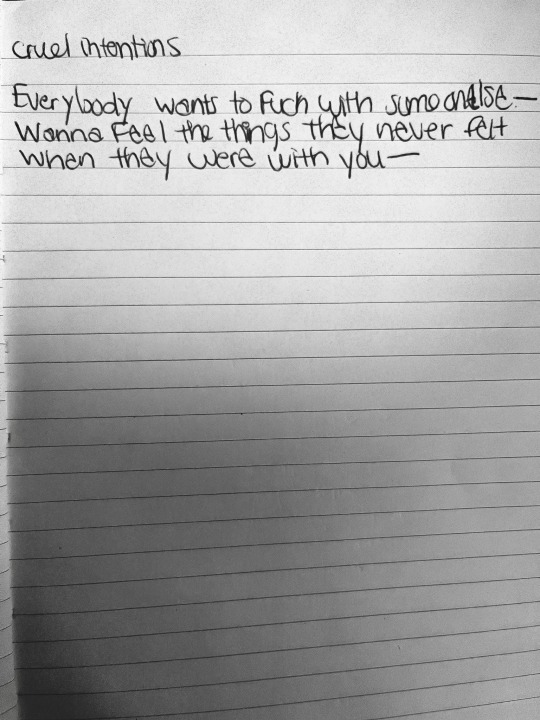 cruel intentions
Everybody wants to Fuck with sumo else—
Wanna Feel the things they never felt
when they were with you—